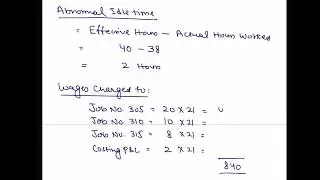 Abnormal Idle time
= Effective Hours - Actual Hours Worked
= 40 - 38
= 2 Hours
Wages Charged to:
Job No. 305 = 20 x 21 =
Job No. 310 = 10 x 21 =
Job No. 315 = 8 x 21 =
Costing P&L = 2 x 21 =
840